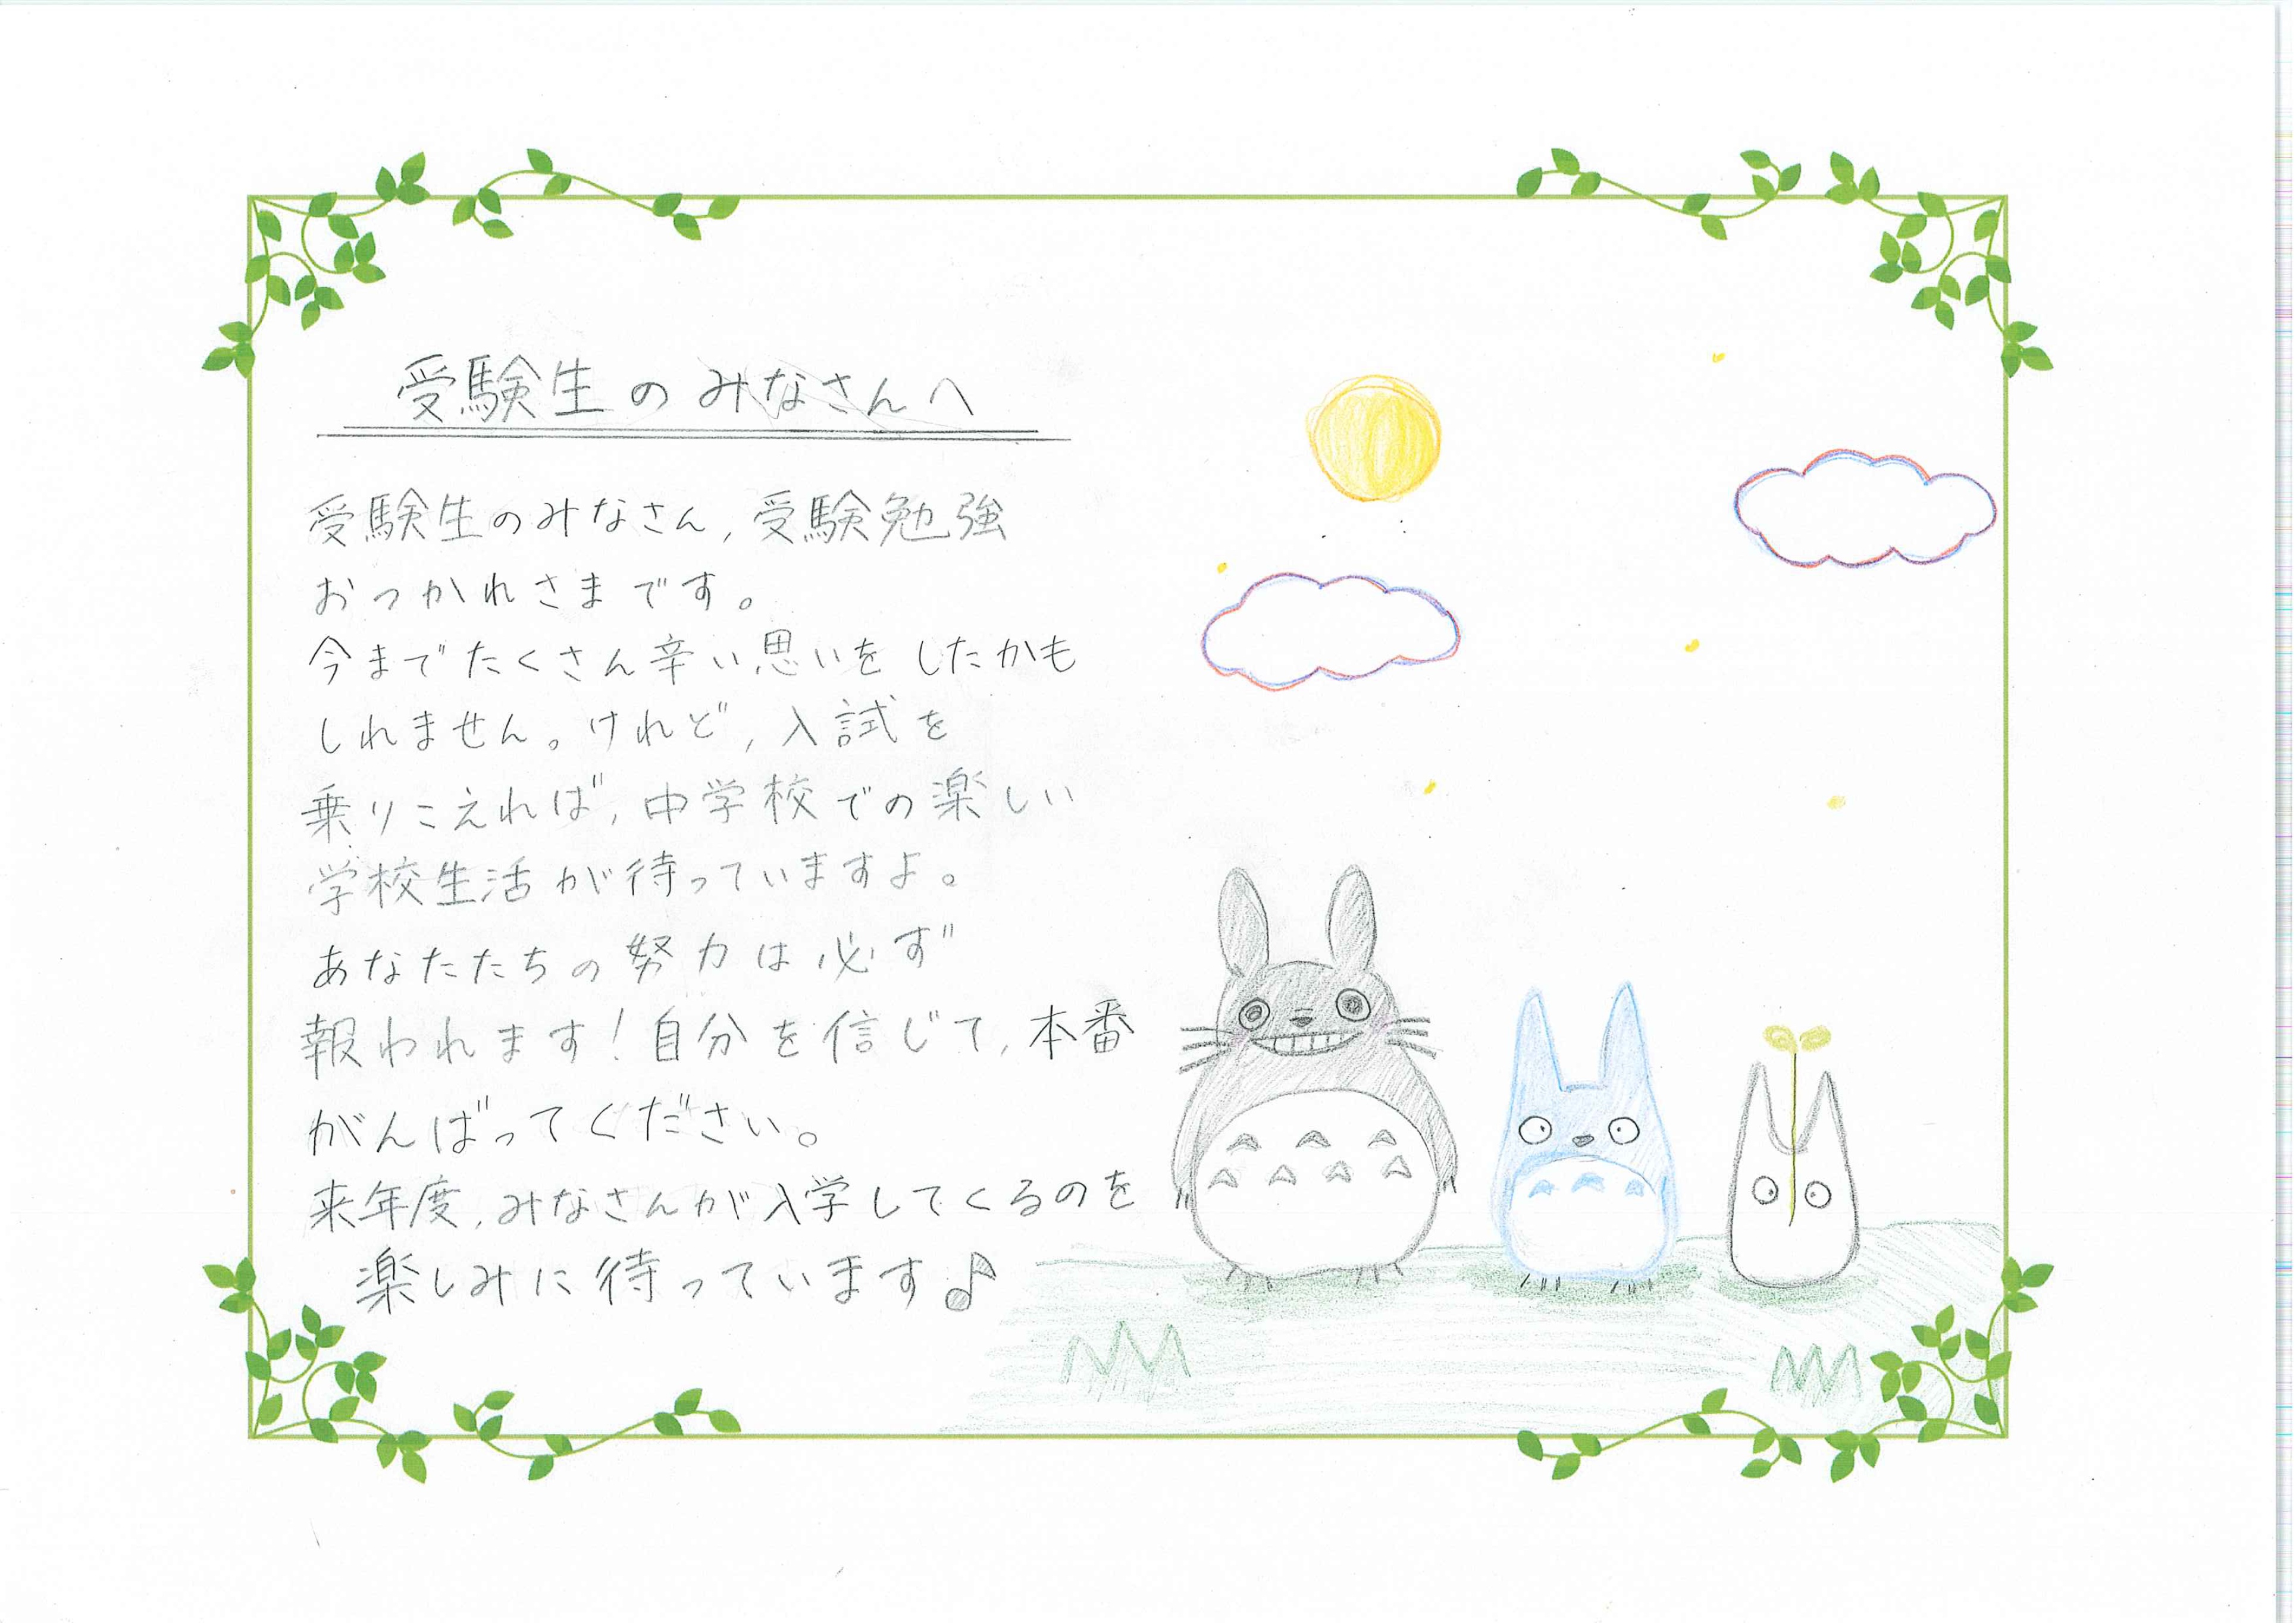 受験生のみなさんへ
受験生のみなさん,受験勉強
おつかれさまです。
今までたくさん辛い思いをしたかも
しれません。けれど,入試を
乗りこえれば,中学校での楽しい
学校生活が待っていますよ。
あなたたちの努力は必ず
報われます!自分を信じて,本番
がんばってください。
来年度,みなさんが入学してくるのを
楽しみに待っています♪